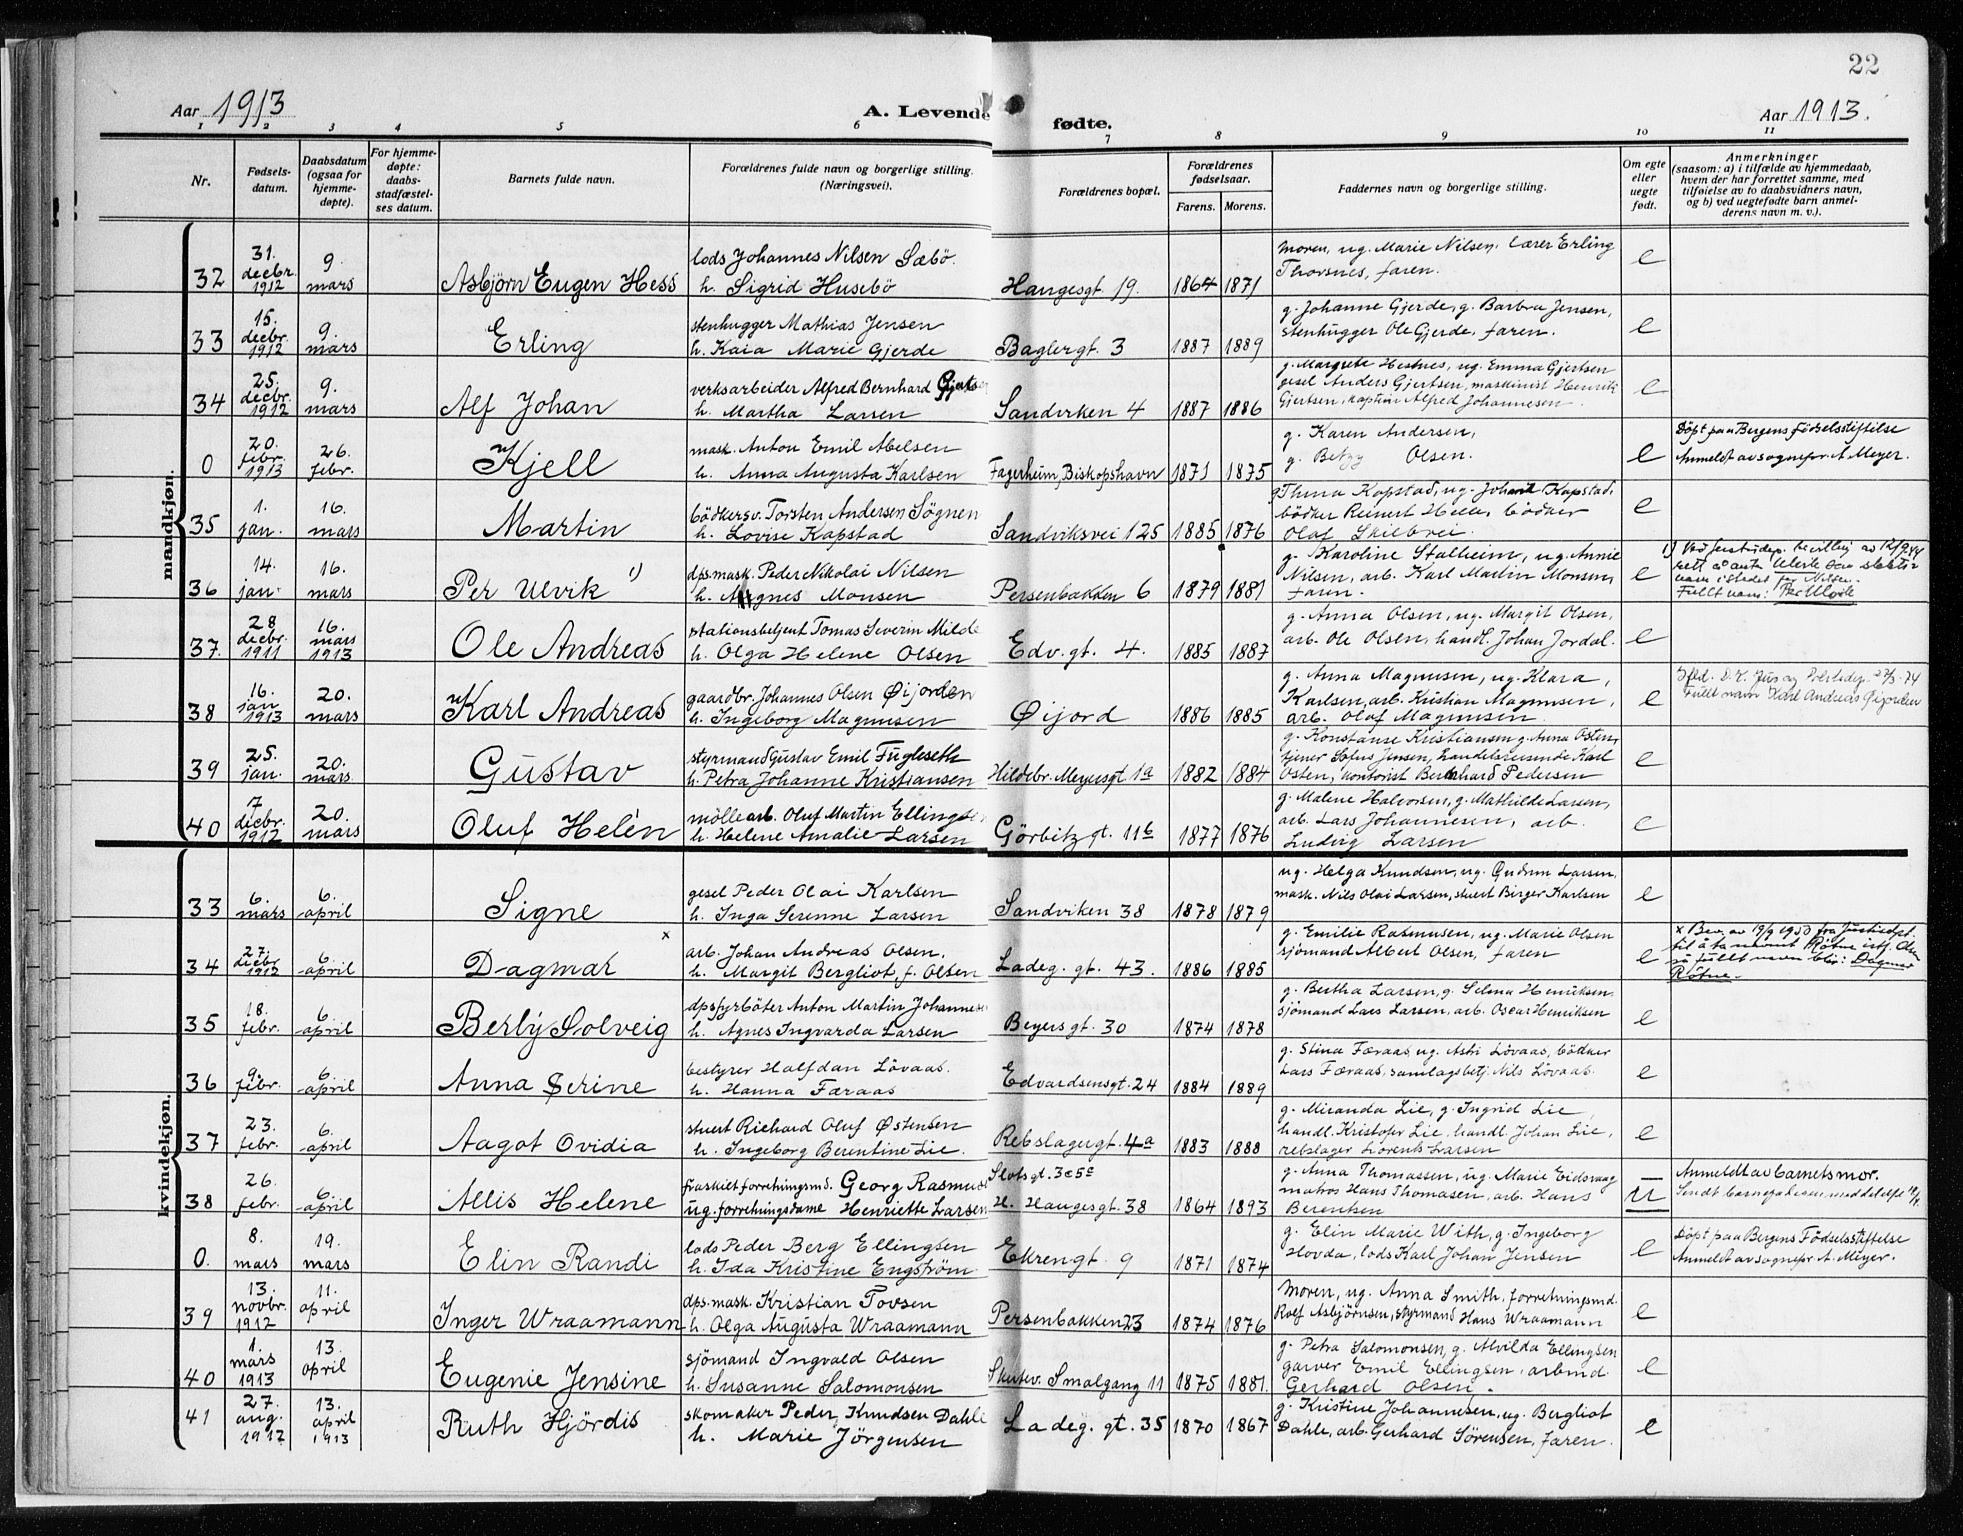 22
Aar 1913
A. Levende fødte.
Aar 1913.
1 2 3 4 5 6 7 8 9 10 11
Nr.
Fødsels-
datum.
Daabsdatum
(ogsaa for
hjemme-
døpte).
For hjemme-
døpte:
daabs-
stadfæstel-
ses datum.
Barnets fulde navn.
Forældrenes fulde navn og borgerlige stilling.
(Næringsvei).
Forældrenes bopæl.
Forældrenes
fødselsaar.
Farens. Morens.
Faddernes navn og borgerlige stilling.
Om egte
eller
uegte
født.
Anmerkninger
(saasom: a) i tilfælde av hjemmedaab,
hvem der har forrettet samme, med
tilføielse av to daabsvidners navn,
og b) ved uegtefødte barn anmel-
derens navn m. v.).
mandkjøn.
32
31.
decbr.
1912
9.
mars
Asbjörn Eugen Hess
lods Johannes Nilsen Sæbö.
h. Sigrid Husebö
Haugesgt 19.
1864 1871
Moren, ug. Marie Nilsen, lærer Erling
Thorsnes, faren.
e
33
15.
decbr.
1912
9.
mars
Erling
stenhugger Mathias Jensen
h. Kaia Marie Gjerde
Baglergt. 3
1887 1889
g. Johanne Gjerde, g. Barbra Jensen,
stenhugger Ole Gjerde, faren.
e
34
25.
decbr.
1912
9.
mars
Alf Johan
verksarbeider Alfred Bernhard
h. Martha Larsen
Sandviken 4
1887 1886
g. Margrete Hestnes, ug. Emma Gjertsen
gesel Anders Gjertsen, maskinist Henrik
Gjertsen, kaptein Alfred Johannesen.
e
0
20.
febr.
1913
26.
febr.
Kjell
mask. Anton Emil Abelsen
h. Anna Augusta Karlsen
Fagerheim, Biskopshavn
1871 1875
g. Karen Andersen,
g. Betzy Olsen.
e
Döpt paa Bergens Födselsstiftelse
Anmeldt av sognepr. A. Meyer.
35
1.
jan.
16.
mars
Martin
bödkersv. Torsten Andersen Søgnen
h. Lovise Kapstad
Sandviksvei 125
1885 1876
g Thina Kapstad, ug. Kapstad,
bödker Reinert Helle, bödker
Olaf Skilbrei
e
36
14.
jan.
16.
mars
Per Ulvik 1)
dps.mask. Peder Nikolai Nilsen
h. Agnes Monsen
Persenbakken 6
1879 1881
g. Karoline Stalheim, ug. Annie
Nilsen, arb. Karl Martin Monsen,
faren.
e
1) Ved justisdep. bevilling av
rett til å anta som slekts-
navn istedet for Nilsen.
Fullt navn: Per
37
28
decbr.
1911
16.
mars
1913
Ole Andreas
stationsbetjent Tomas Severin Milde
h. Olga Helene Olsen
Edv. gt. 4.
1885 1887
g. Anna Olsen, ug. Margit Olsen,
arb. Ole Olsen, handl. Johan Jordal.
e
38
16.
jan
1913
20.
mars
Karl Andreas
gaardbr. Johannes Olsen Øijorden
h. Ingeborg Magnusen
Øijord
1886 1885
g. Anna Magnusen, ug. Klara
Karlsen, arb. Kristian Magnusen,
arb. Olaf Magnusen
e
Fullt navn Karl Andreas Øijorden
39
25.
jan.
20.
mars
Gustav
styrmand Gustav Emil Fugleseth
h. Petra Johanne Kristiansen
Hildebr. Meyersgt 1a
1882 1884
g. Konstanse Kristiansen g. Anna Osten,
tjener Sofus Jensen, handelsreisende Karl
Osten, kontorist Bernhard Pedersen
e
40
7
decbr.
1912
20.
mars
Oluf Helén
möllearb. Oluf Martin Ellingsen
h. Helene Amalie Larsen
Görbitz gt. 11b
1877 1876
g. Malene Halvorsen, g. Mathilde Larsen,
arb. Lars Johannesen, arb.
Ludvig Larsen
e
kvindekjøn.
33
6.
mars
6.
april
Signe
gesel Peder Olai Karlsen
h. Inga Serenne Larsen
Sandviken 38
1878 1879
ug. Helga Knudsen, ug. Gudrun Larsen
mask. Nils Olai Larsen, stuert Birger Karlsen
e
34
27.
decbr.
1912
6.
april
Dagmar x
arb. Johan Andreas Olsen.
h. Margit Bergliot, f. Olsen
Ladeg. gt. 43.
1886 1885
g. Emilie Rasmusen, ug. Marie Olsen
sjömand Albert Olsen, faren
e
x Bev. av 19/9 1950 fra Justisdept.
til å ta navnet Røtne istf. Olsen
så fullt navn blir: Dagmar
Røtne.
35
18.
febr.
6.
april
Berly Solveig
dpsfyrböter Anton Martin Johannesen
h. Agnes Ingvarda Larsen
Beyers gt. 30
1874 1878
g. Bertha Larsen, g. Selma Henriksen.
sjömand Lars Larsen, arb. Oscar Henriksen
e
36
9.
febr.
6.
april
Anna Serine
bestyrer Halfdan Lövaas.
h. Hanna Færaas
Edvardsensgt. 24
1884 1889
g. Stina Færaas, ug. Astri Lövaas, bödker
Lars Færaas, samlagsbetj. Nils Lövaas.
e
37
23.
febr.
6.
april
Aagot Ovidia
stuert Richard Oluf Østensen
h. Ingeborg Berentine Lie.
Rebslagergt. 4a
1883 1888
g. Miranda Lie, g. Ingrid Lie,
handl. Kristofer Lie, handl. Johan Lie,
rebslager Lorents Larsen
e
38
26.
febr.
6.
april
Allis Helene
fraskilt forretningsmd. Georg Rasmus
ug. forretningsdame Henriette Larsen
Slotsgt. 3c5c
H. Haugesgt. 38
1864 1893
g. Anna Thomassen, ug. Marie Eidsvaag
matros Hans Thomasen, arb. Hans
Berentsen
u
Anmeldt av barnets mor.
0.
8.
mars
19.
mars
Elin Randi
lods Peder Berg Ellingsen
h. Ida Kristine Engström
Ekrengt. 9
1871 1874
g. Elin Marie With, g. Ingeborg
Hovda, lods Karl Johan Jensen
e
Döpt paa Bergens Födselsstiftelse
Anmeldt av sognepr. A. Meyer.
39
13.
novbr.
1912
11.
april
Inger Wraamann
dps. mask. Kristian Tovsen
h. Olga Augusta Wraamann
Persenbakken 23
1874 1876
Moren, ug. Anna Smith, forretningsmd.
Rolf Asbjörnsen, styrmand Hans Wraamann
e
40
1.
mars
1913
13.
april
Eugenie Jensine
sjömand Ingvald Olsen
h. Susanne Salomonsen
Skutev. Smalgang 11
1875 1881.
g. Petra Salomonsen, g. Alvilda Ellingsen
garver Emil Ellingsen, arbmd.
Gerhard Olsen.
e
41
27.
aug.
1912
13.
april
1913
Ruth Hjördis
skomaker Peder Knudsen Dahle
h. Marie Jörgensen
Ladeg. gt. 35
1870 1867
g. Kristine Johannesen, ug. Bergliot
Dahle, arb. Gerhard Sörensen, faren.
e